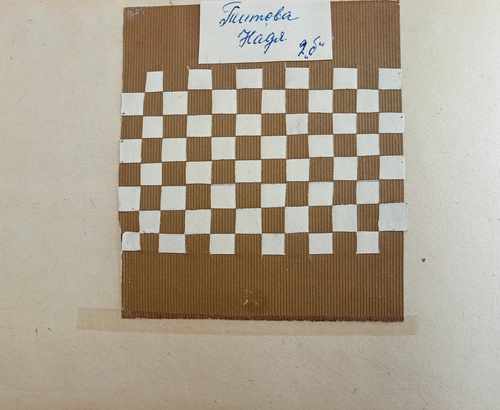 Титова
Надя
2„б“